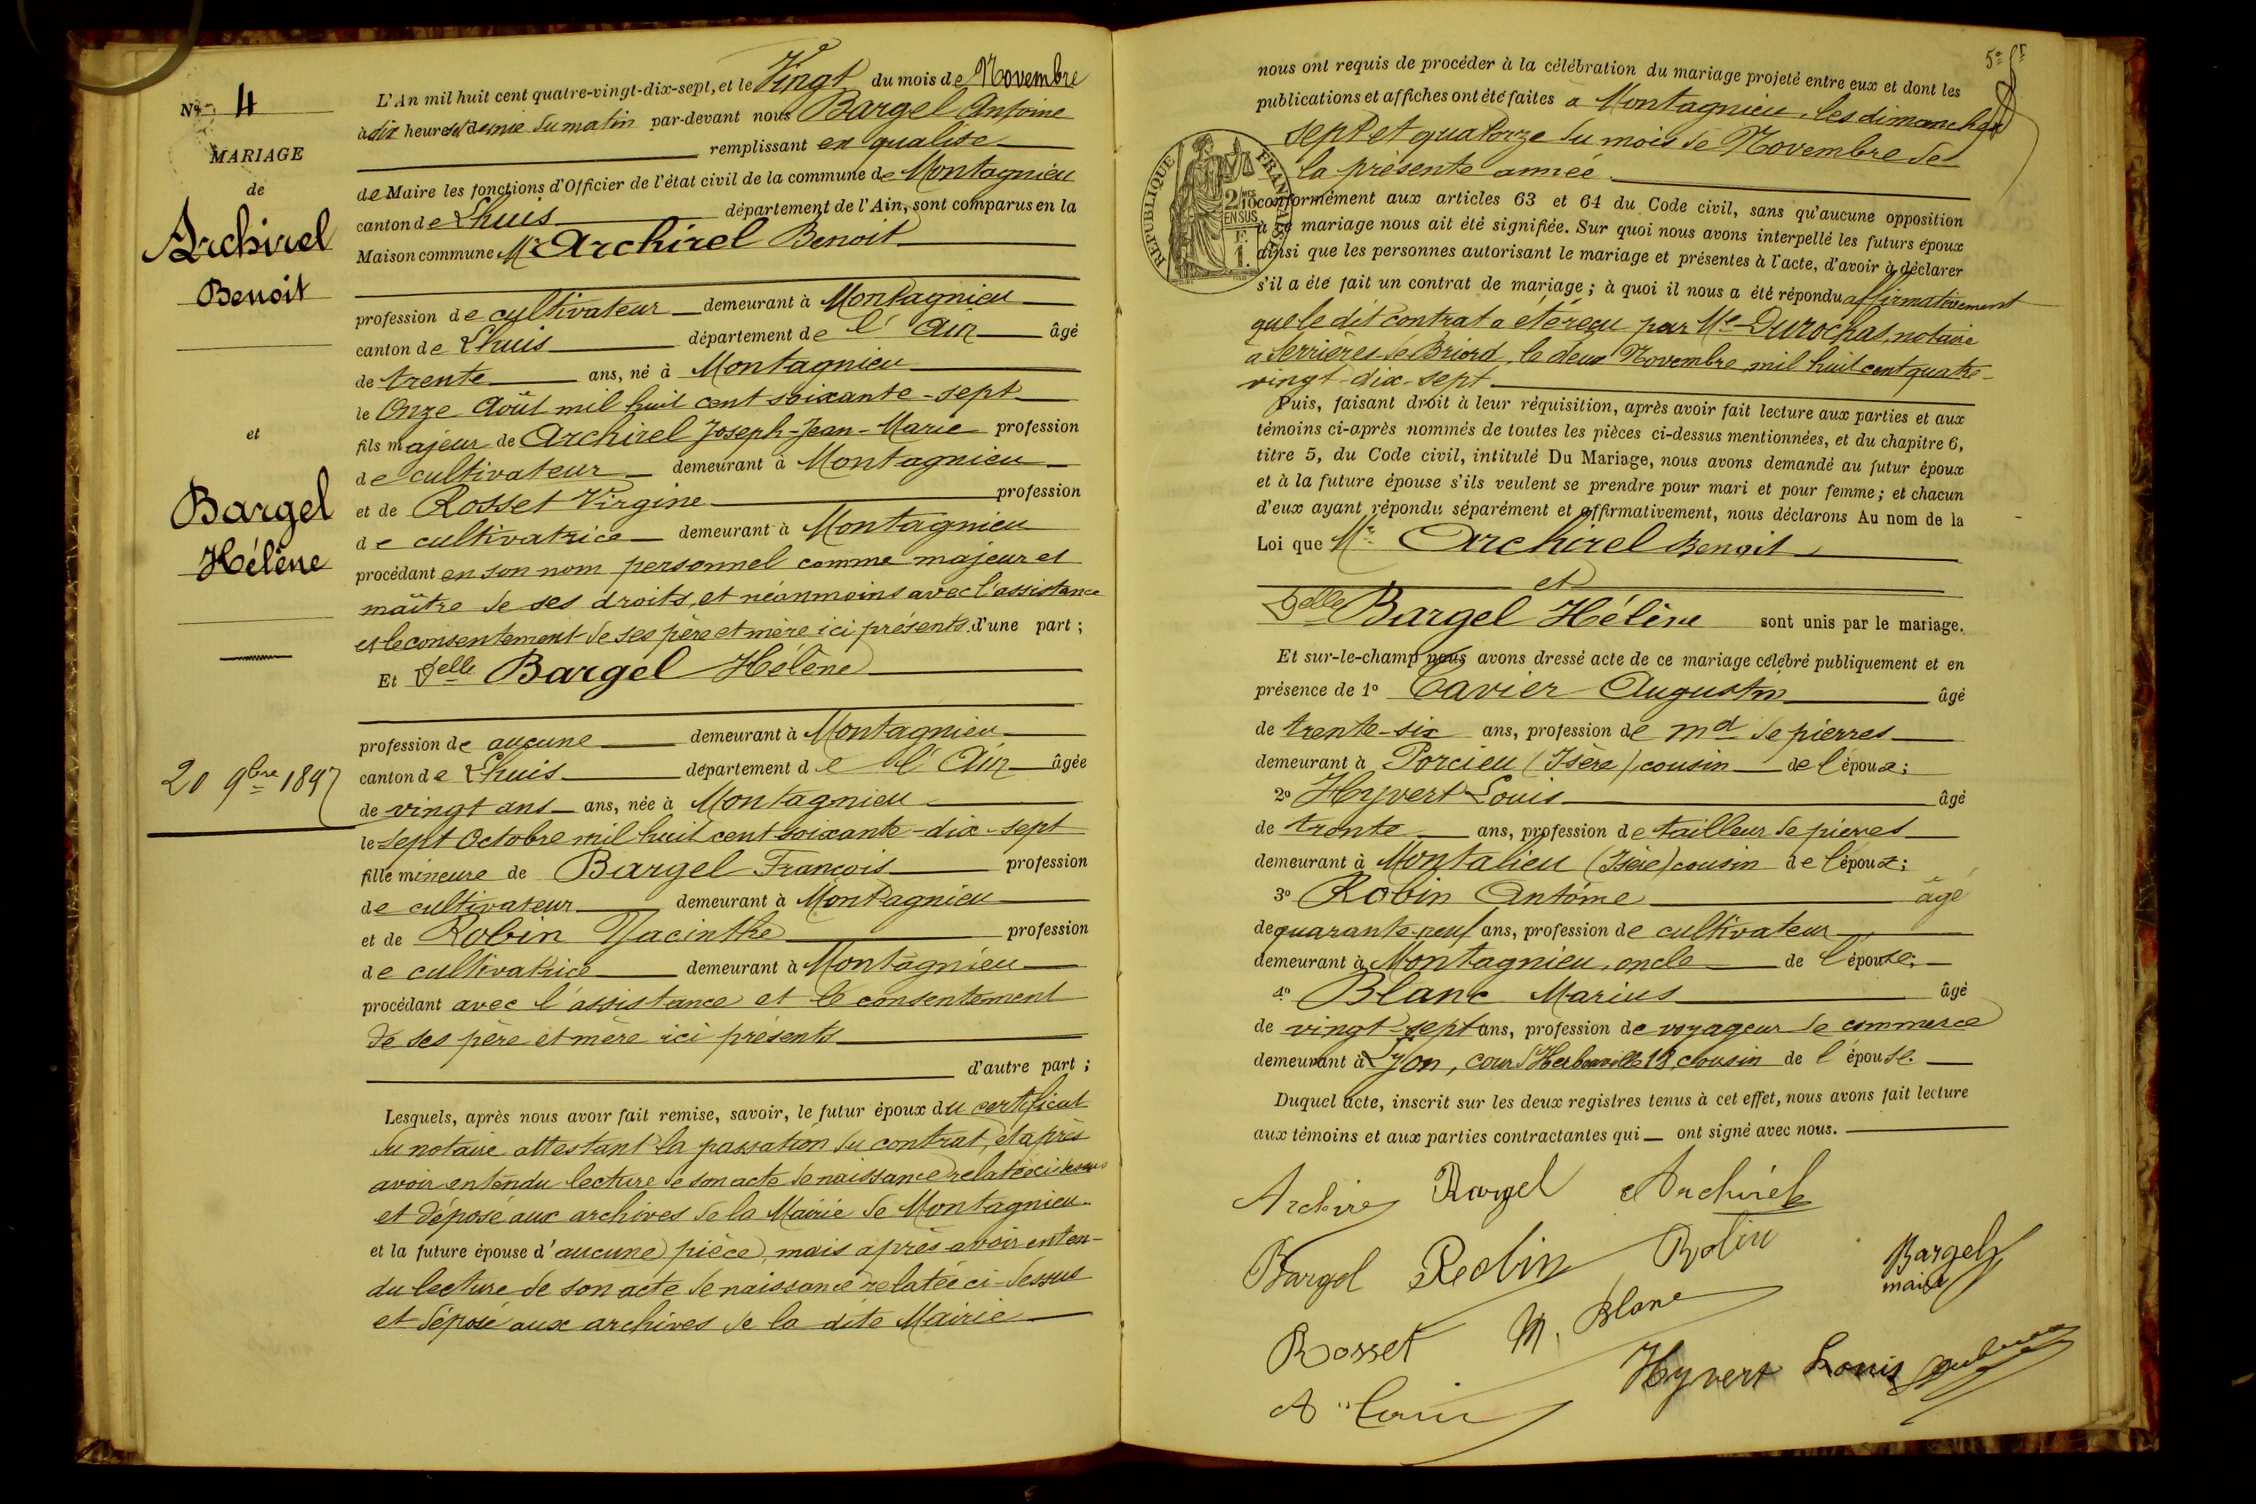 No 4
MARIAGE
de
Archirel
Benoit
et
Bargel
Hélène
20 9bre 1897
L'An mil huit cent quatre-vingt-dix-sept, et le Vingt du mois de Novembre
à dix heures et demie du matin par-devant nous Bargel Antoine
remplissant en qualité
de Maire les fonctions d'Officier de l'état civil de la commune de Montagnieu
canton de Lhuis département de l'Ain, sont comparus en la
Maison commune Mr Archirel Benoit
profession de cultivateur demeurant à Montagnieu
canton de Lhuis département de l'Ain âgé
de trente ans, né à Montagnieu
le Onze Août mil huit cent soixante-sept
fils majeur de Archirel Joseph-Jean-Marie profession
de cultivateur demeurant à Montagnieu
et de Rosset Virgine profession
de cultivatrice demeurant à Montagnieu
procédant en son nom personnel comme majeur et
maître de ses droits, et néanmoins avec l'assistance
et le consentement de ses père et mère ici présents, d'une part ;
Et Delle Bargel Hélène
profession de aucune demeurant à Montagnieu
canton de Lhuis département de l'Ain âgée
de vingt ans ans, née à Montagnieu
le sept Octobre mil huit cent soixante-dix-sept
fille mineure de Bargel François profession
de cultivateur demeurant à Montagnieu
et de Robin Yacinthe profession
de cultivatrice demeurant à Montagnieu
procédant avec l'assistance et le consentement
de ses père et mère ici présents
d'autre part ;
Lesquels, après nous avoir fait remise, savoir, le futur époux du certificat
du notaire attestant la passation du contrat, et après
avoir entendu lecture de son acte de naissance relatée ci-dessus
et déposé aux archives de la Mairie de Montagnieu
et la future épouse d'aucune pièce, mais après avoir enten-
du lecture de son acte de naissance relatée ci-dessus
et déposé aux archives de la dite Mairie
5e ft
nous ont requis de procéder à la célébration du mariage projeté entre eux et dont les
publications et affiches ont été faites à Montagnieu, les dimanches
sept et quatorze du mois de Novembre de
la présente année
RÉPUBLIQUE FRANÇAISE
2/10 MES EN SUS
F. 1.
conformément aux articles 63 et 64 du Code civil, sans qu'aucune opposition
à ce mariage nous ait été signifiée. Sur quoi nous avons interpellé les futurs époux
ainsi que les personnes autorisant le mariage et présentes à l'acte, d'avoir à déclarer
s'il a été fait un contrat de mariage ; à quoi il nous a été répondu affirmativement
que le dit contrat a été reçu par Me Durochas, notaire
à Serrières-de-Briord, le deux Novembre mil huit cent quatre-
vingt-dix-sept
Puis, faisant droit à leur réquisition, après avoir fait lecture aux parties et aux
témoins ci-après nommés de toutes les pièces ci-dessus mentionnées, et du chapitre 6,
titre 5, du Code civil, intitulé Du Mariage, nous avons demandé au futur époux
et à la future épouse s'ils veulent se prendre pour mari et pour femme ; et chacun
d'eux ayant répondu séparément et affirmativement, nous déclarons Au nom de la
Loi que Mr Archirel Benoit
et
Delle Bargel Hélène sont unis par le mariage.
Et sur-le-champ nous avons dressé acte de ce mariage célébré publiquement et en
présence de 1o Cavier Augustin âgé
de trente-six ans, profession de md de pierres
demeurant à Porcieu (Isère), cousin de l'époux ;
2o Hyvert Louis âgé
de trente ans, profession de tailleur de pierres
demeurant à Montalieu (Isère) cousin de l'époux ;
3o Robin Antoine âgé
de quarante-neuf ans, profession de cultivateur
demeurant à Montagnieu, oncle de l'épouse ;
4o Blanc Marius âgé
de vingt-sept ans, profession de voyageur de commerce
demeurant à Lyon, cours d'Herbouville 18, cousin de l'épouse.
Duquel acte, inscrit sur les deux registres tenus à cet effet, nous avons fait lecture
aux témoins et aux parties contractantes qui ont signé avec nous.
Archirel Bargel Archirel
Bargel Robin Robin Bargel
maire
Rosset M. Blanc
Hyvert Louis